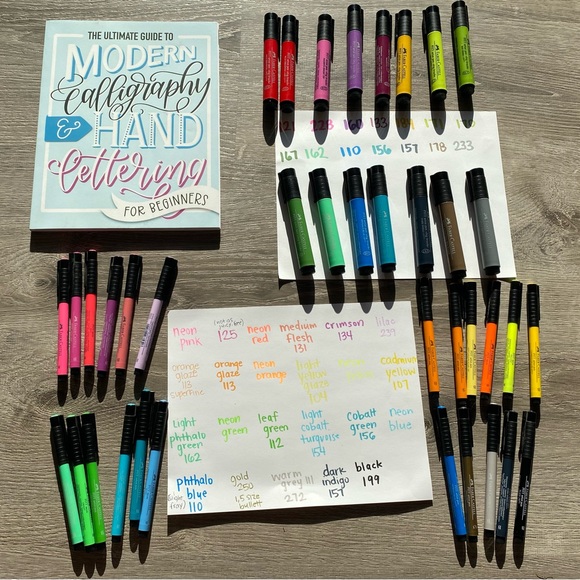 THE ULTIMATE GUIDE TO
MODERN
Calligraphy
& HAND
Lettering
FOR BEGINNERS
121 228 160 133 184 171 170
167 162 110 156 157 178 233
neon pink
125
neon red
medium flesh 131
crimson 134
lilac 239
orange glaze 113 superfine
orange glaze 113
neon orange
light yellow glaze 104
cadmium yellow 107
light phthalo green 162
neon green
leaf green 112
light cobalt turquoise 154
cobalt green 156
neon blue
phthalo blue 110
gold 250 1,5 size bullett
warm grey III 272
dark indigo 157
black 199